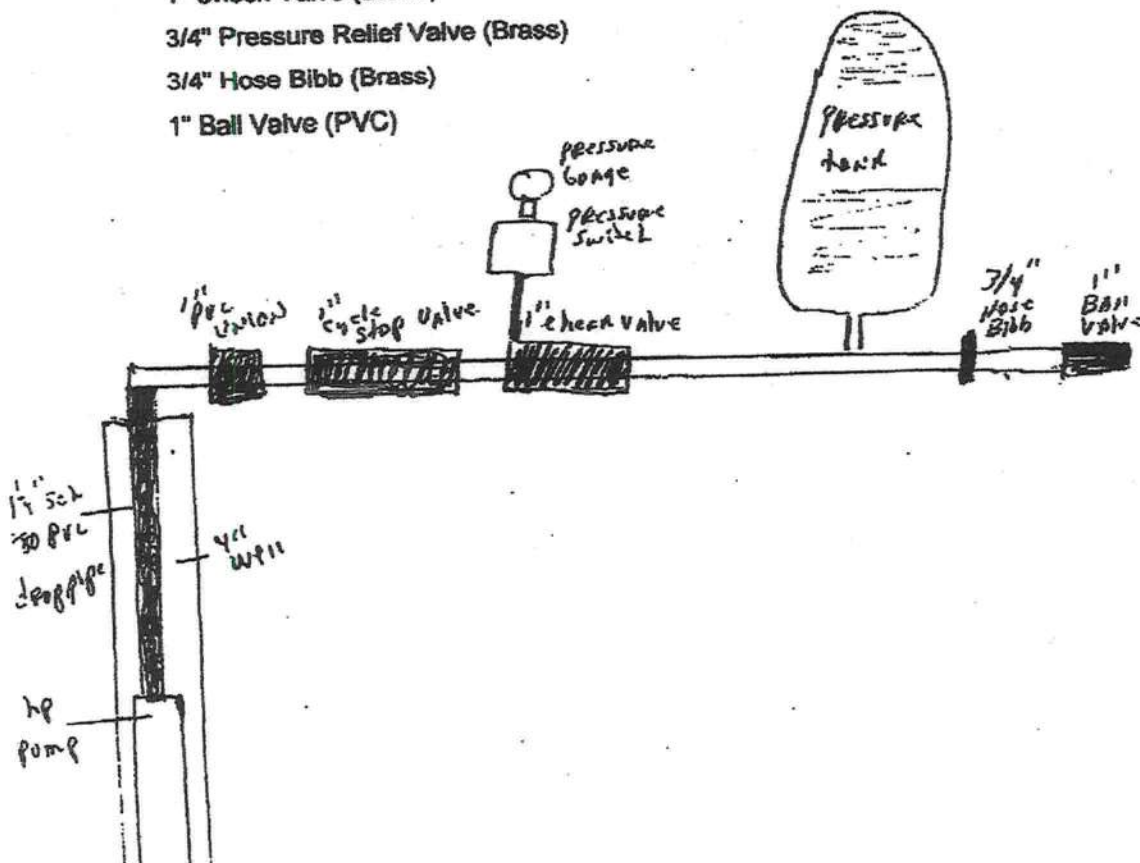 3/4" Pressure Relief Valve (Brass)
3/4" Hose Bibb (Brass)
1" Ball Valve (PVC)
pressure
Gauge
pressure
switch
pressure
tank
1" PVC
UNION
1" cycle
stop valve
1" check valve
3/4"
Hose
Bibb
1"
Ball
Valve
PVC
drop pipe
4"
well
hp
pump